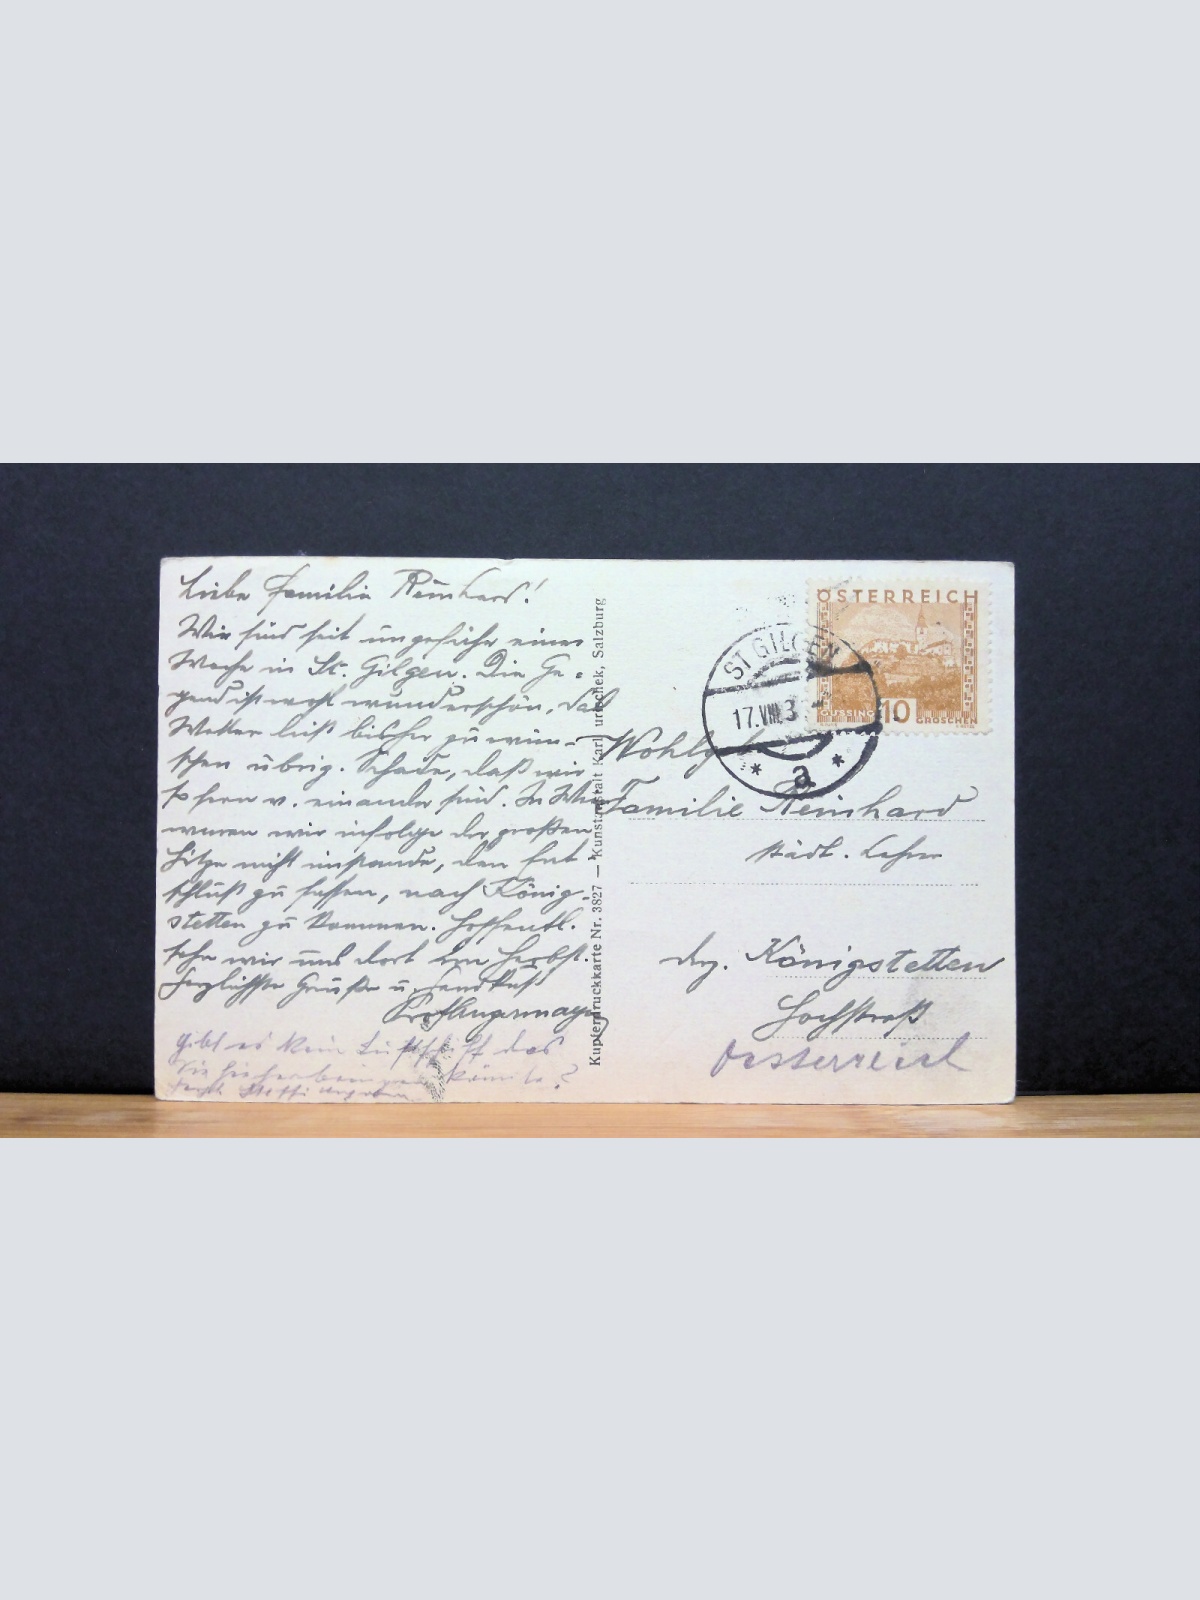 Liebe Familie Reinhard!
Wir sind seit ungefähr einer
Woche in St. Gilgen. Die Ge-
gend ist wohl wunderschön, das
Wetter ließ bisher zu wün-
schen übrig. Schade, daß wir
so fern v. einander sind. In Wien
waren wir infolge der großen
Hitze nicht imstande, den Ent-
schluß zu fassen, nach König-
stetten zu kommen. Hoffentl.
sehn wir uns dort im Herbst.
Herzlichste Grüße u. Handkuß
gibt es kein Luftschiff das
Sie hieher bringen könnte?
Kupferdruckkarte Nr. 3827 — Kunstanstalt Karl Jurischek, Salzburg
ÖSTERREICH
GÜSSING 10 GROSCHEN
ST GILGEN
17.VIII.3
* a *
Wohlg
Familie Reinhard
städt. Lehrer
Königstetten
Hochstraß
Oesterreich